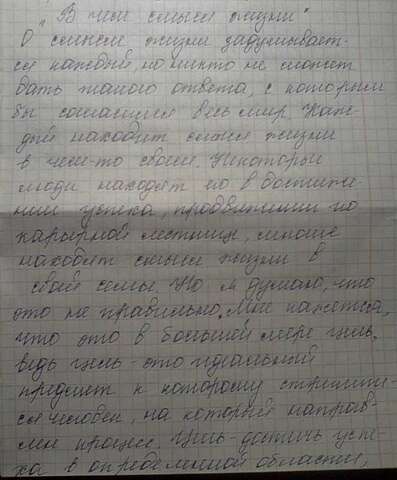 „В чем смысл жизни"
О смысле жизни задумывает-
ся каждый, но никто не может
дать такого ответа, с которым
бы согласился весь мир. Каж-
дый находит смысл жизни
в чем-то своем. Некоторые
люди находят его в достиже
нии успеха, продвижении по
карьерной лестнице, многие
находят смысл жизни в
своей семье. Но я думаю, что
это не правильно. Мне кажется,
что это в большей мере цель,
ведь цель - это идеальный
предмет к которому стремит-
ся человек, на который направ-
лен процесс. Цель - достичь успе-
ха в определенной области,